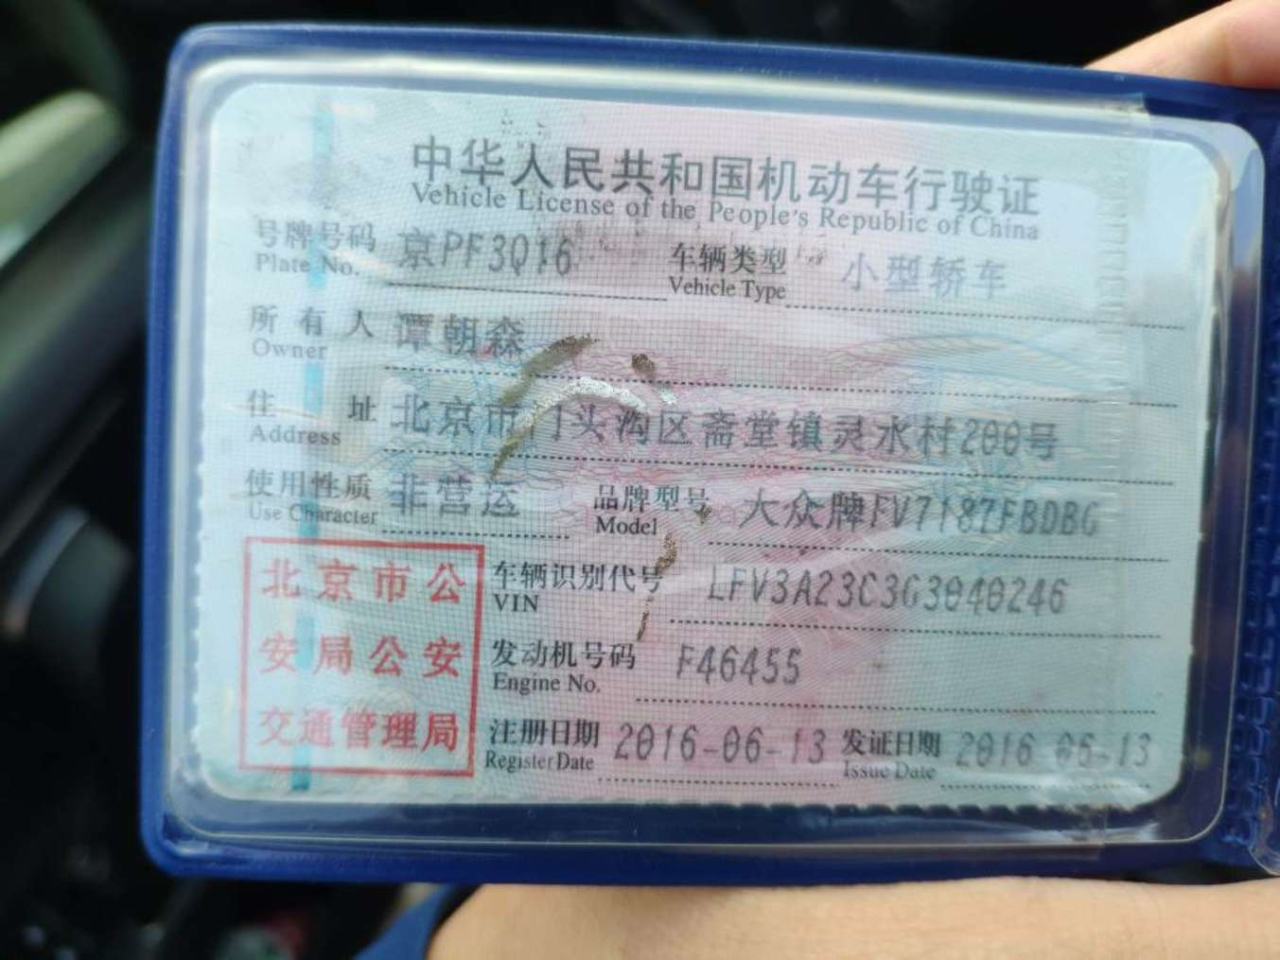 中华人民共和国机动车行驶证
Vehicle License of the People's Republic of China
号牌号码 京PF3Q16 车辆类型 小型轿车
Plate No. Vehicle Type
所有人 谭朝森
Owner
住址 北京市门头沟区斋堂镇灵水村200号
Address
使用性质 非营运 品牌型号 大众牌FV7187FBDBG
Use Character Model
北京市公
安局公安
交通管理局
车辆识别代号 LFV3A23C3G3040246
VIN
发动机号码 F46455
Engine No.
注册日期 2016-06-13 发证日期 2016-06-13
Register Date Issue Date